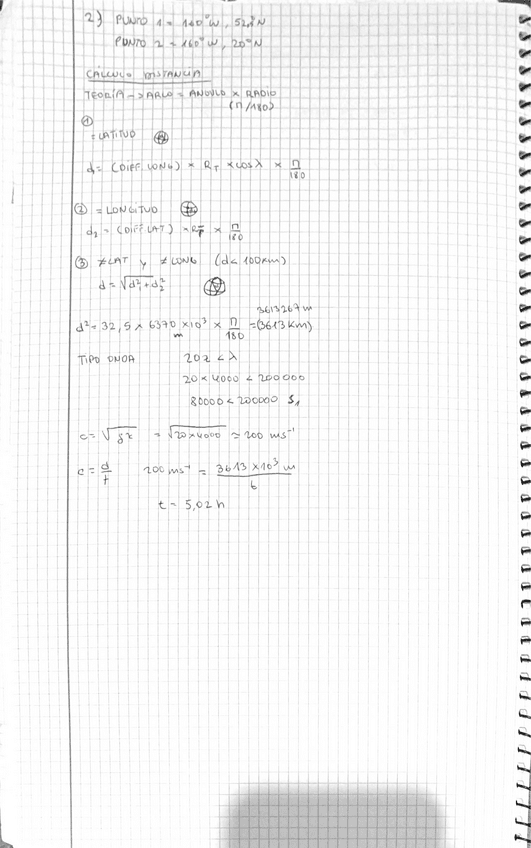 2) PUNTO 1 = 160°W, 52,5°N
PUNTO 2 = 160°W, 20°N
CÁLCULO DISTANCIA
TEORÍA -> ARCO = ANGULO × RADIO
(π/180)
①
= LATITUD
d₁ = (DIFF. LONG) × R_T × cosλ × π/180
② = LONGITUD
d₂ = (DIFF LAT) × R_T × π/180
③ ≠LAT y ≠LONG (d< 100km)
d = √d₁²+d₂²
3613267 m
d² = 32,5 × 6370 × 10³ × π/180 = (3613 km)
m
TIPO ONDA 20z < λ
20 × 4000 < 200000
80000 < 200000 Sí
c = √gz = √20×4000 ≈ 200 ms⁻¹
c = d/t 200 ms⁻¹ = 3613 × 10³ m / t
t = 5,02 h